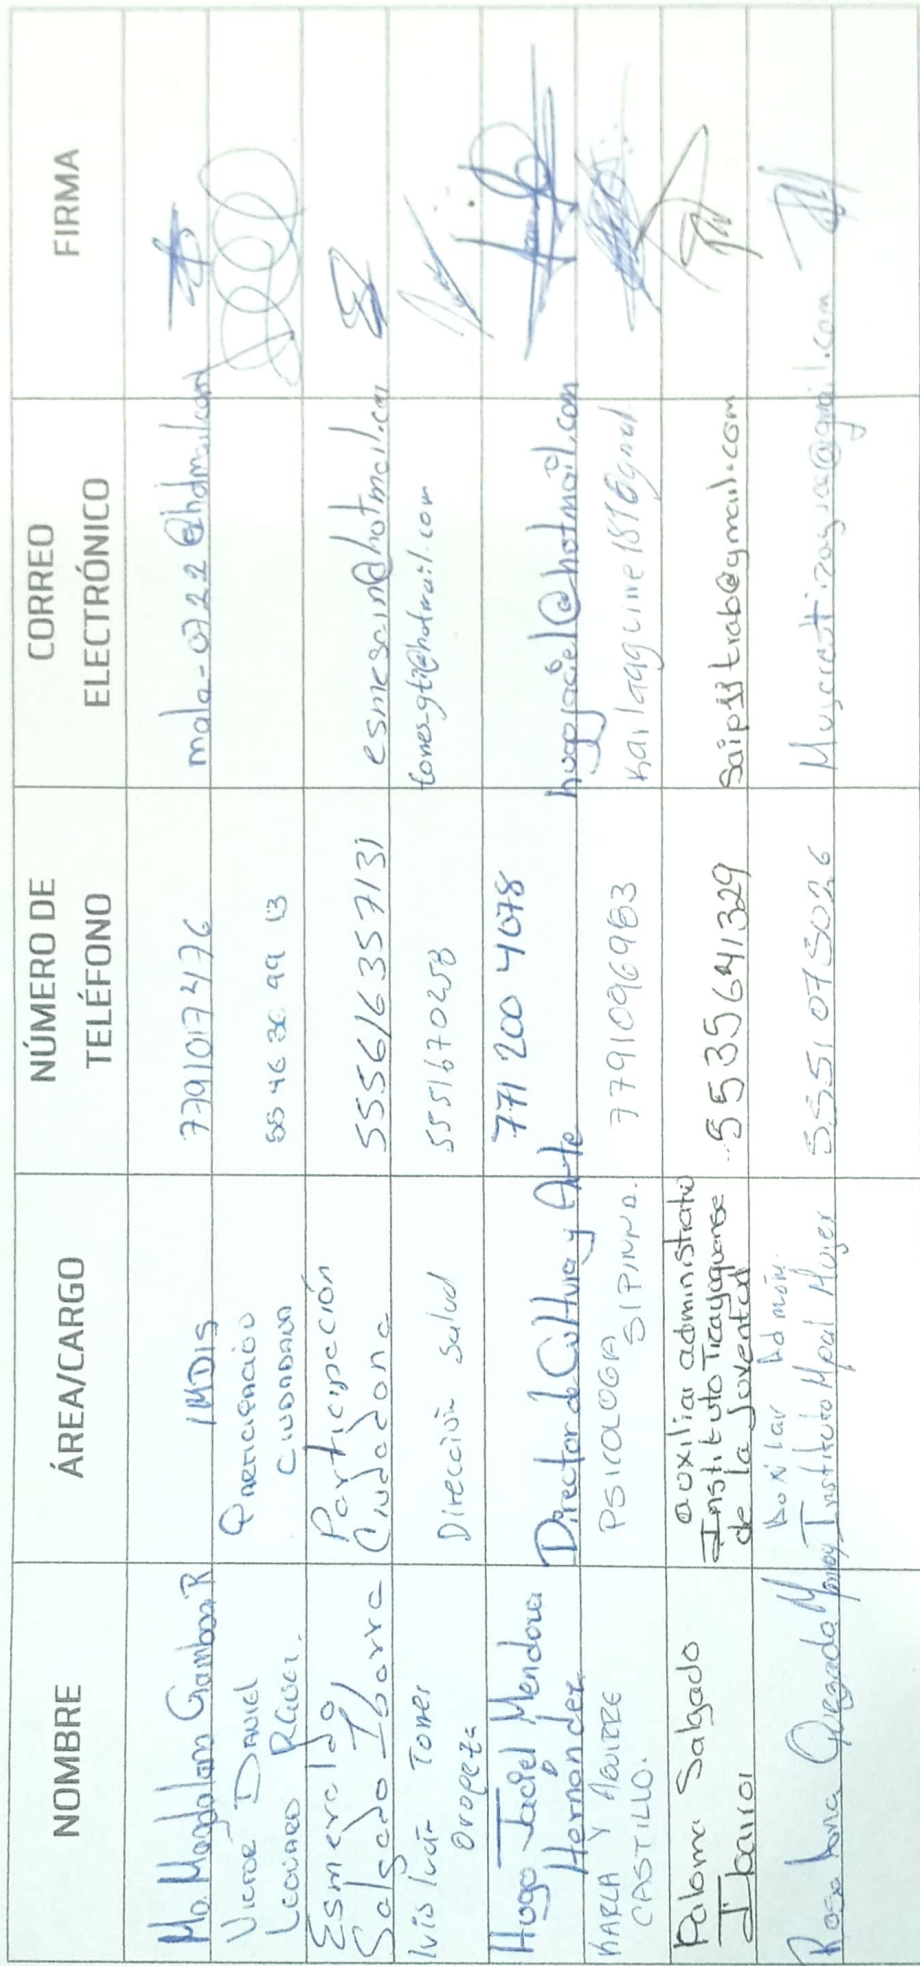 NOMBRE
ÁREA/CARGO
NÚMERO DE TELÉFONO
CORREO ELECTRÓNICO
FIRMA
Ma. Magdalena Gamboa R
IMDIS
7791017476
mala-0722@hotmail.com
Victor Daniel
Participacio
Ciudadana
55 46 36 99 13
Esmeralda
Salgado Ibarra
Participación
Ciudadana
5556163571
esmesain@hotmail.com
Luis Iván Torres
Oropeza
Dirección Salud
5551670258
torresgti@hotmail.com
Hugo Jaciel Mendoza
Hernandez
Director de Cultura y Arte
771 200 4078
hugojaciel@hotmail.com
KARLA Y AGUIRRE
CASTILLO.
PSICOLOGA
SIPINNA.
7791096983
Paloma Salgado
Ibarra
auxiliar administrativo
Instituto Tizayuquense
de la Juventud
5535641329
Saipjjtrab@gmail.com
Rosa Quezada
Auxiliar Admón.
Instituto Mpal Mujer
5551075026